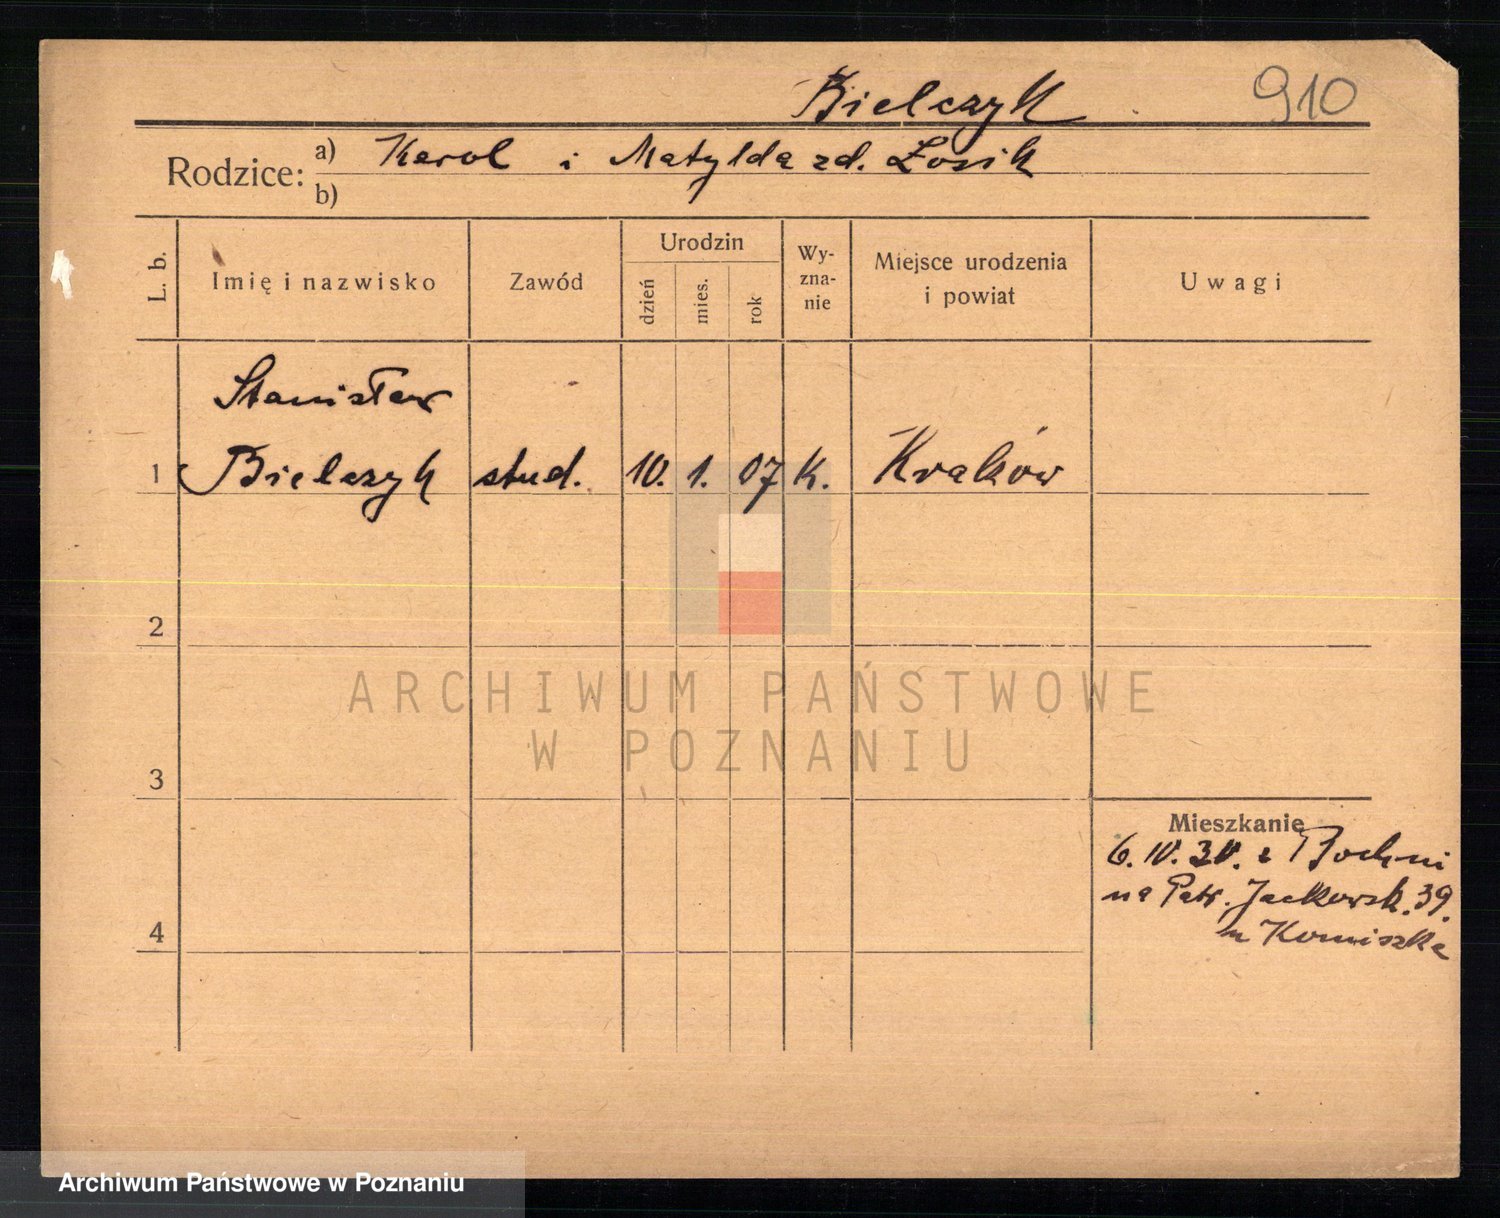 Bielczyk
910
Rodzice: a) Karol i Matylda zd. Łosik
b)
L. b.
Imię i nazwisko
Zawód
Urodzin
dzień
mies.
rok
Wy-
zna-
nie
Miejsce urodzenia
i powiat
Uwagi
Stanisław
1 Bielczyk stud. 10. 1. 07 K. Kraków
2
ARCHIWUM PAŃSTWOWE
W POZNANIU
3
Mieszkanie
6. IV. 30. z Bochni
na Patr. Jackowsk. 39.
4
Archiwum Państwowe w Poznaniu